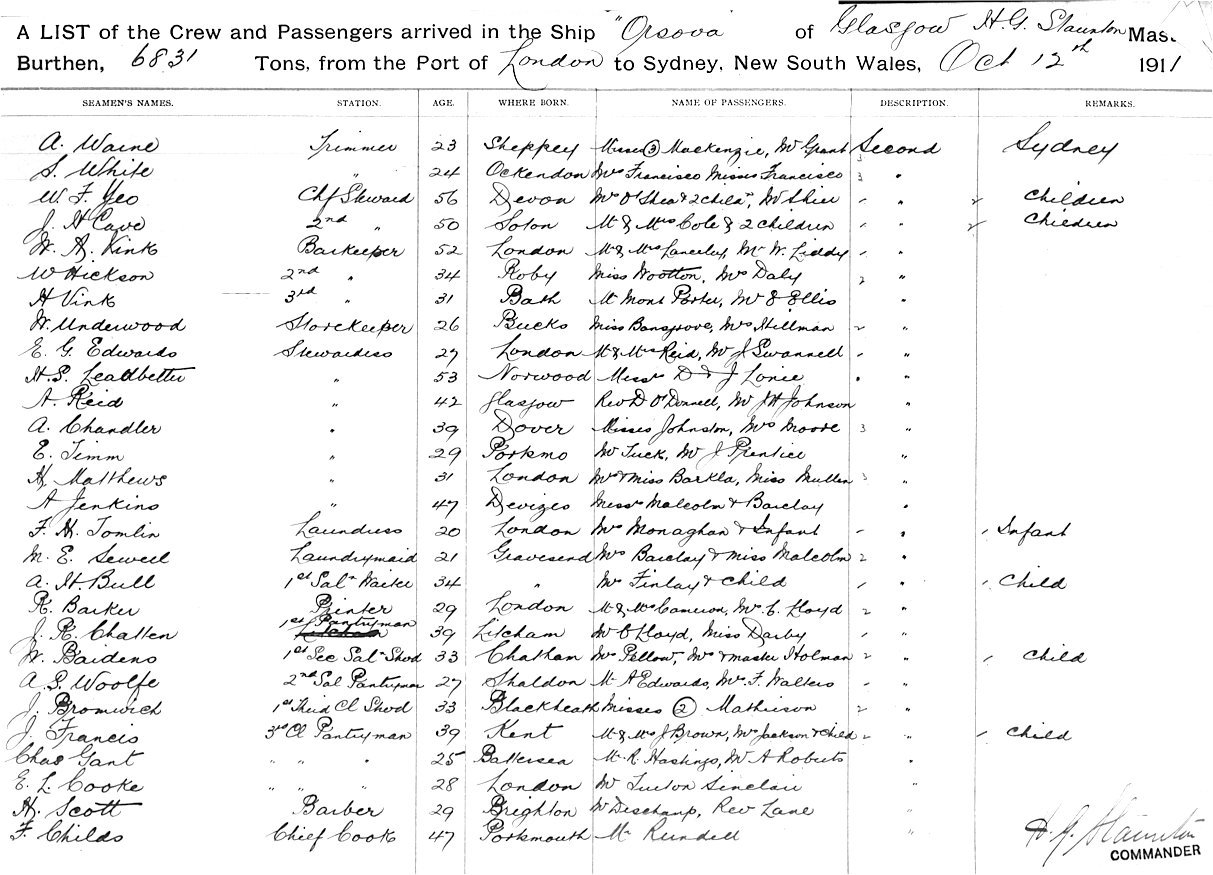 A LIST of the Crew and Passengers arrived in the Ship "Orsova of Glasgow H. G. Staunton Mast
Burthen, 6831 Tons, from the Port of London to Sydney, New South Wales, Oct 12th 1911
SEAMEN'S NAMES. STATION. AGE. WHERE BORN. NAME OF PASSENGERS. DESCRIPTION. REMARKS.
A. Waine Trimmer 23 Sheppey Misses (3) Mackenzie, Mr Grant 3 Second Sydney
S. White " 24 Ockendon Mrs Francisco Misses Francisco 3 "
W. F. Yeo Chf Steward 56 Devon Mrs O'Shea & 2 childn, Mr Shier " 2 Children
J. H Cave 2nd " 50 Soton Mr & Mrs Cole & 2 children " 2 Children
W. A. Vink Barkeeper 52 London Mr & Mrs Lancerley, Mr W. Liddy "
W Hickson 2nd " 34 Roby Miss Wootton, Mrs Daly 2 "
H Vink 3rd " 31 Bath Mr Mont Porter, Mr E Ellis "
W. Underwood Storekeeper 26 Bucks Miss Bansgrove, Mrs Hillman 2 "
E. G. Edwards Stewardess 27 London Mr & Mrs Reid, Mr J Swannell "
H. S. Leadbetter " 53 Norwood Misses D & J Lonie "
A. Reid " 42 Glasgow Rev D O'Donnell, Mr J H Johnson "
A. Chandler " 39 Dover Misses Johnston, Mrs Moore 3 "
E. Timm " 29 Portsmo Mr Tuck, Mr J Prentice "
H. Matthews " 31 London Mrs & Miss Barkla, Miss Mullen 3 "
A Jenkins " 47 Devizes Messrs Malcolm & Barclay "
F. H. Tomlin Laundress 20 London Mrs Monaghan & Infant " Infant
M. E. Sewell Laundrymaid 21 Gravesend Mrs Barclay & Miss Malcolm 2 "
A. H. Bull 1st Saln Waiter 34 " Mrs Finlay & Child " Child
R. Barker Printer 29 London Mr & Mrs Cameron, Mr C. Lloyd 2 "
J. R. Challen 1st Pantryman 39 Litcham Mr C Lloyd, Miss Darby "
W. Baidens 1st Sec Saln Stwd 33 Chatham Mrs Pellow, Mrs & Master Holman 2 " Child
A. S. Woolfe 2nd Sal Pantryman 27 Shaldon Mr A Edwards, Mr F. Walters "
J. Bromwich 1st Third Cl Stwd 33 Blackheath Misses (2) Mathieson 2 "
J. Francis 3rd Cl Pantryman 39 Kent Mr & Mrs J Brown, Mrs Jackson & Child 2 " Child
Chas Gant " " " 25 Battersea Mr R. Hastings, Mr A Roberts "
E. L. Cooke " " " 28 London Mr Sinclair "
H. Scott Barber 29 Brighton Mr Deschamp, Rev Lane "
F. Childs Chief Cook 47 Portsmouth Mr Rundell "
H. G. Staunton
COMMANDER